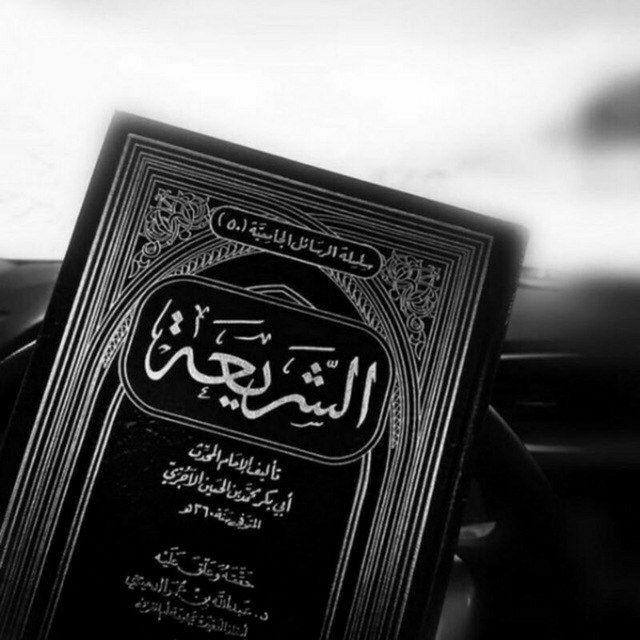 سلسلة الرسائل الجامعية (٥٠)
الشريعة
تأليف الإمام المحدث
أبي بكر محمد بن الحسين الآجري
المتوفى سنة ٣٦٠هـ
حققه وعلق عليه
د. عبدالله بن عمر الدميجي